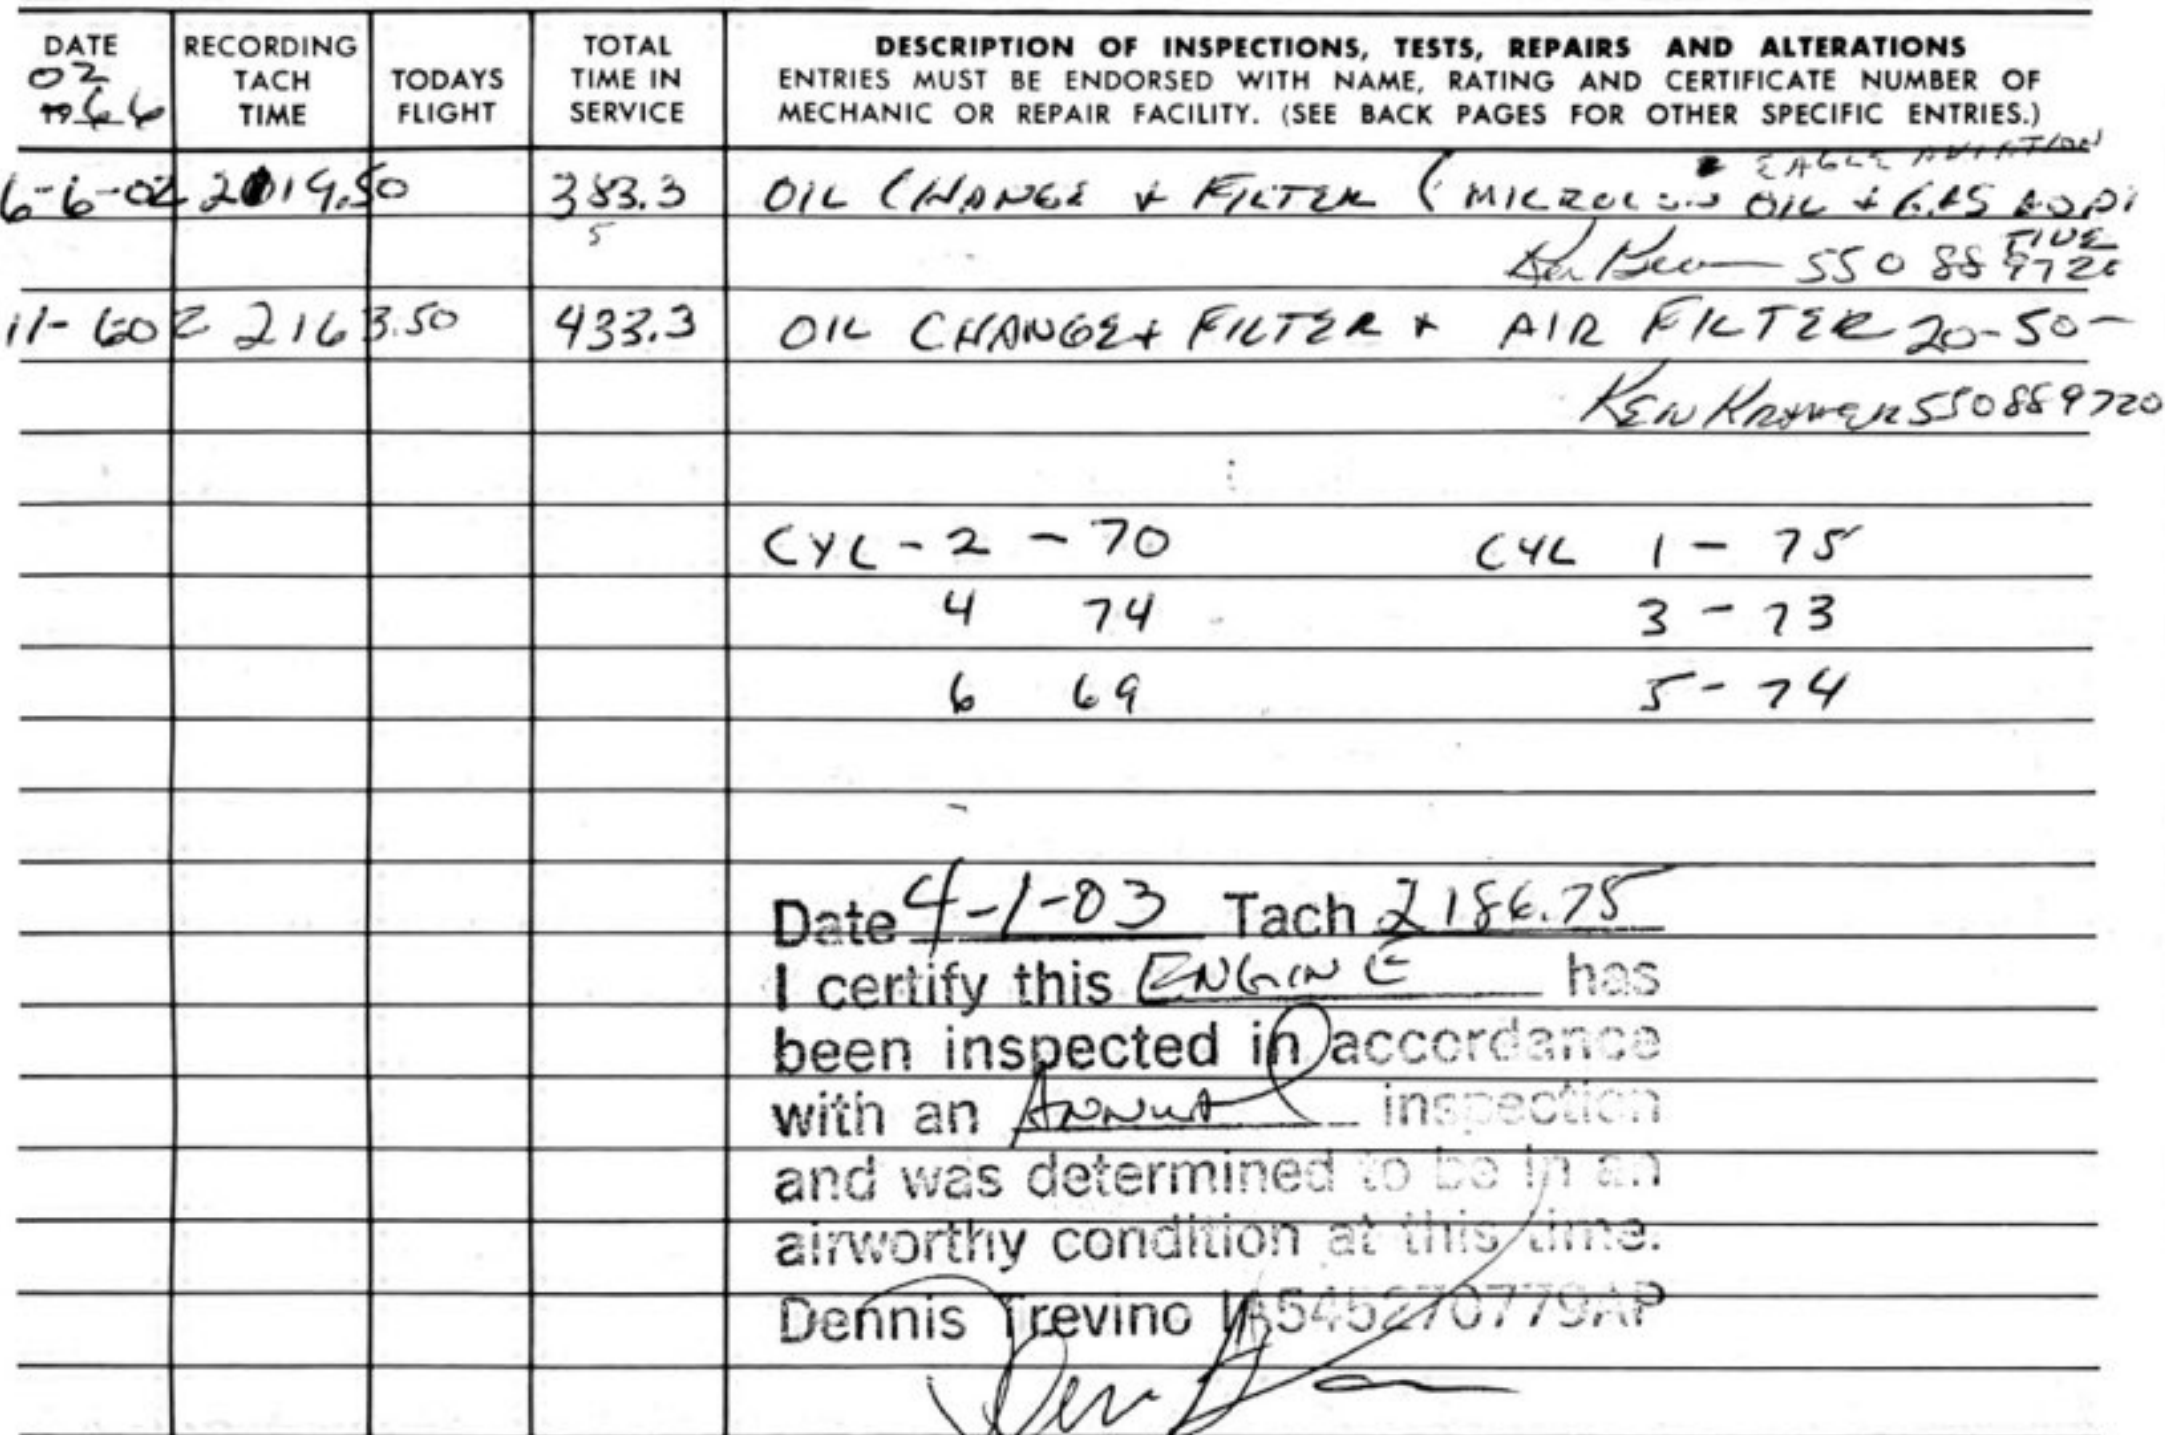 DATE RECORDING TACH TIME TODAYS FLIGHT TOTAL TIME IN SERVICE DESCRIPTION OF INSPECTIONS, TESTS, REPAIRS AND ALTERATIONS
02 ENTRIES MUST BE ENDORSED WITH NAME, RATING AND CERTIFICATE NUMBER OF
19 66 MECHANIC OR REPAIR FACILITY. (SEE BACK PAGES FOR OTHER SPECIFIC ENTRIES.)
EAGLE AVIATION
6-6-02 2019.50 383.3 OIL CHANGE + FILTER ( OIL + GAS ADDI
5 TIVE
Ken 55088 9720
11-602 2163.50 433.3 OIL CHANGE + FILTER + AIR FILTER 20-50-
KEN 550889720
CYL - 2 - 70 CYL 1 - 75
4 74 3 - 73
6 69 5 - 74
Date 4-1-03 Tach 2186.75
I certify this ENGINE has
been inspected in accordance
with an Annual inspection
and was determined to be in an
airworthy condition at this time.
Dennis Trevino IA545270779AP